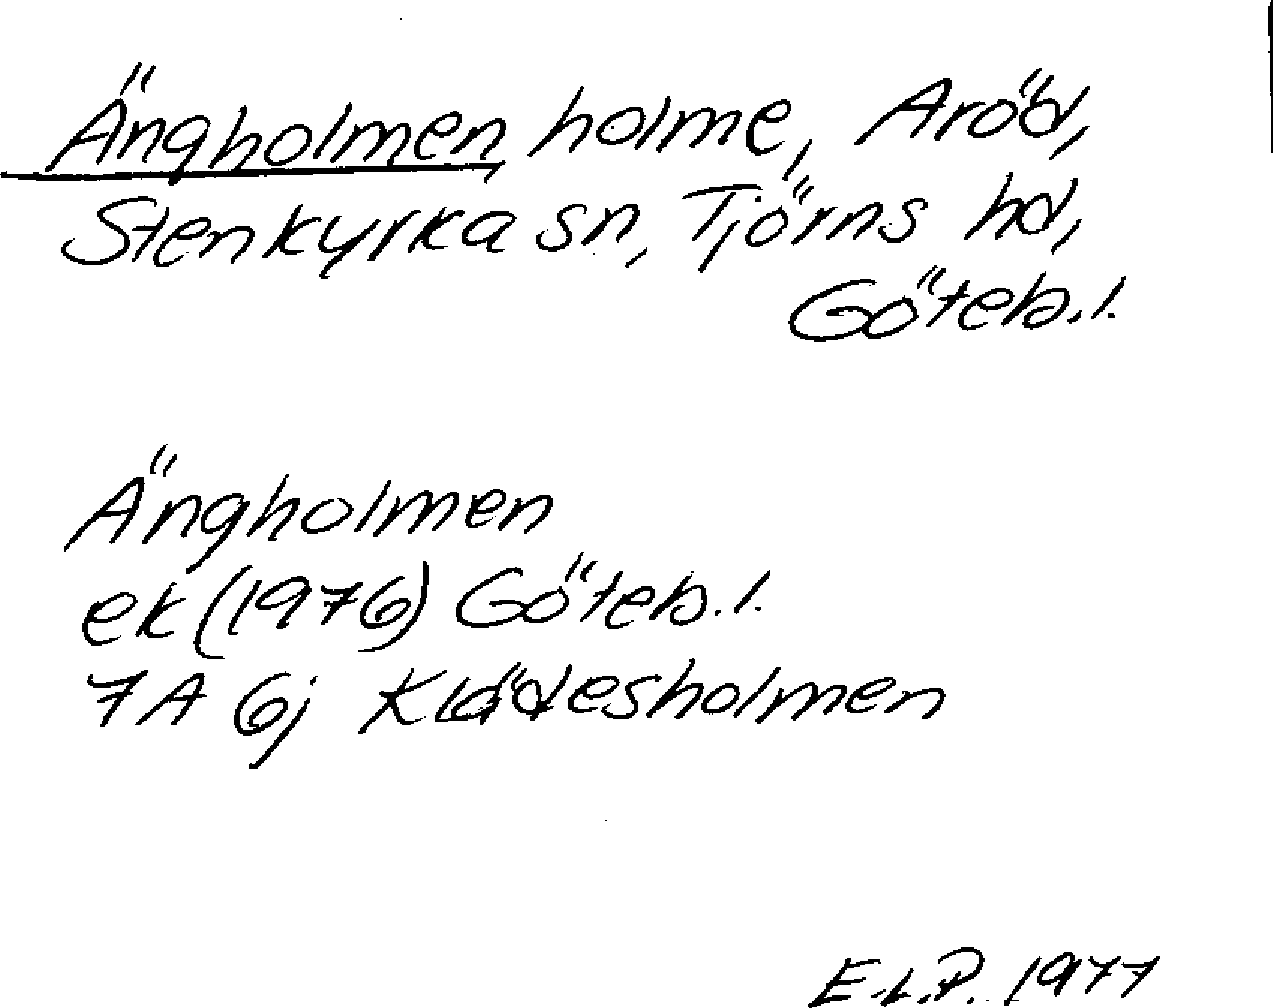 Ängholmen, holme, Aröd,
Stenkyrka sn, Tjörns hd,
Göteb.l.
Ängholmen
ek (1976) Göteb.l.
7A 6j Klädesholmen
E.L.P. 1977